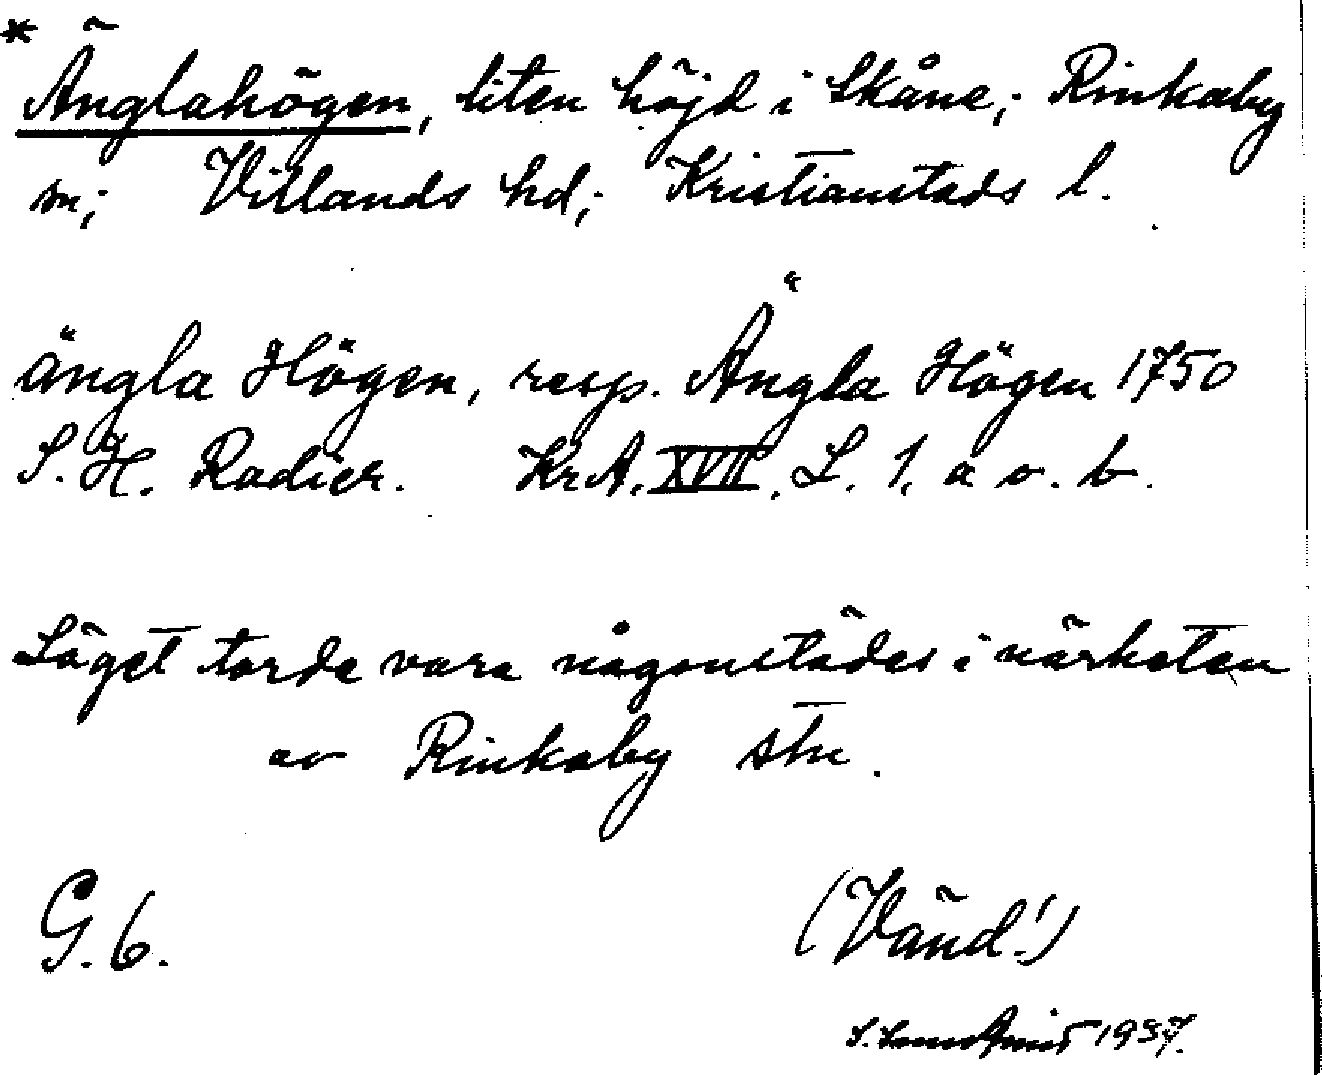 * Änglahögen, liten höjd i Skåne; Rinkaby
sn; Villands hd; Kristianstads l.
ängla Högen, resp. Ängla Högen 1750
S. H. Radier. KrA. XVII. L. 1, a o. b.
Läget torde vara någonstädes i närheten
av Rinkaby stn.
G. 6.
(Vänd!)
S. 1937.